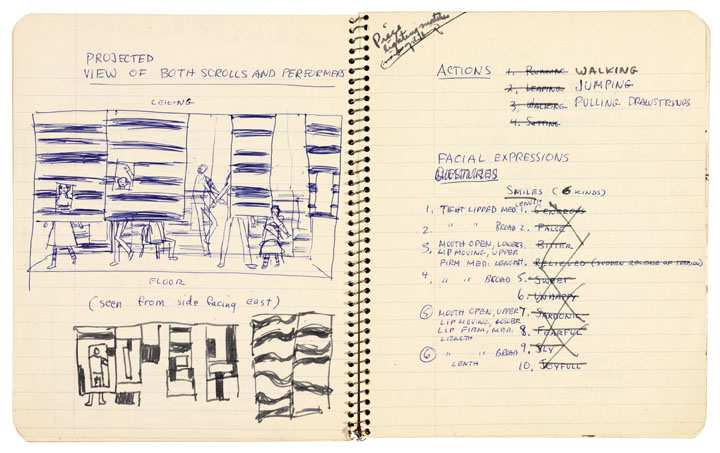 PROJECTED
VIEW OF BOTH SCROLLS AND PERFORMERS
CEILING
FLOOR
(seen from side facing east)
lighting matches
ACTIONS
1. RUNNING WALKING
2. LEAPING JUMPING
3. WALKING PULLING DRAWSTRINGS
4. SITTING
FACIAL EXPRESSIONS
GESTURES
SMILES (6 KINDS)
1. TIGHT LIPPED MED. LENGTH 1. GENEROUS
2. " " BROAD 2. FALSE
3. MOUTH OPEN, LOWER 3. BITTER
LIP MOVING, UPPER
FIRM MED. LENGTH 4. RELIEVED (SUDDEN RELEASE OF TENSION)
4. " " BROAD 5. SWEET
6. UNHAPPY
5 MOUTH OPEN, UPPER 7. SARDONIC
LIP MOVING, LOWER
LIP FIRM, MED. 8. FEARFUL
LENGTH
9. SLY
6 " " BROAD
LENTH 10. JOYFULL